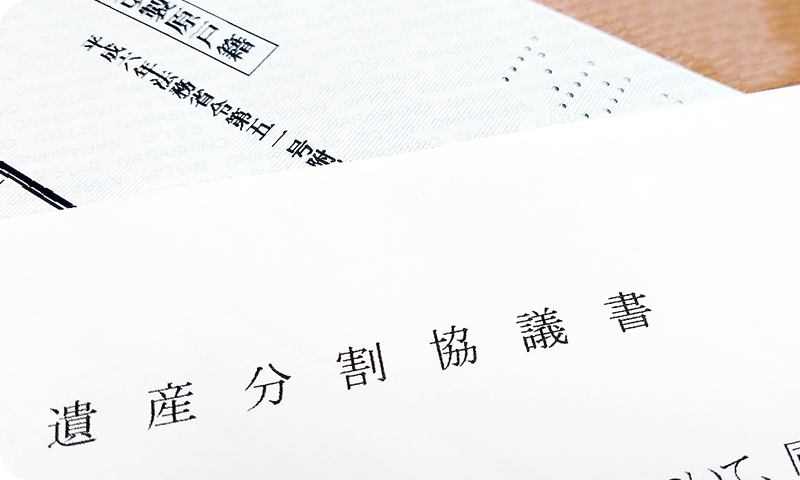 製原戸籍
平成六年法務省令第五一号附
NARASHINO
遺産分割協議書
ついて、同